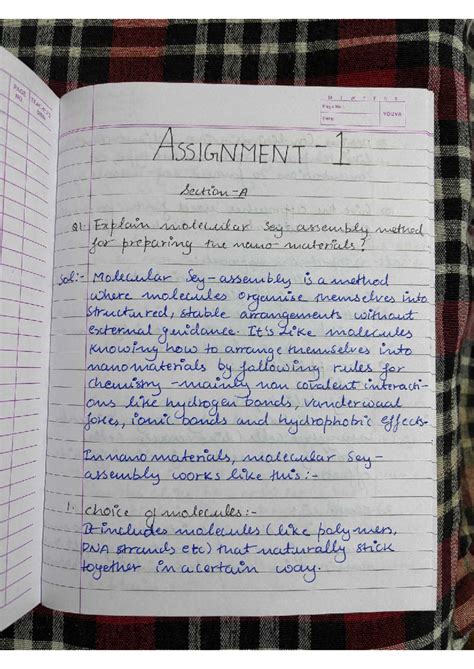 PAGE NO.
TEACHER'S SIGN.
Page No.:
Date:
YOUVA
ASSIGNMENT-1
Section-A
Q1. Explain molecular Self-assembly method
for preparing the nano-materials?
Sol:- Molecular Self-assembly is a method
where molecules organise themselves into
structured, stable arrangements without
external guidance. It's like molecules
knowing how to arrange themselves into
nanomaterials by following rules for
chemistry -mainly non covalent interacti-
ons like hydrogen bonds, vanderwaal
forces, ionic bonds and hydrophobic effects.
In nano materials, molecular Self-
assembly works like this:-
1. choice of molecules:-
It includes molecules (like polymers,
DNA strands etc) that naturally stick
together in a certain way.